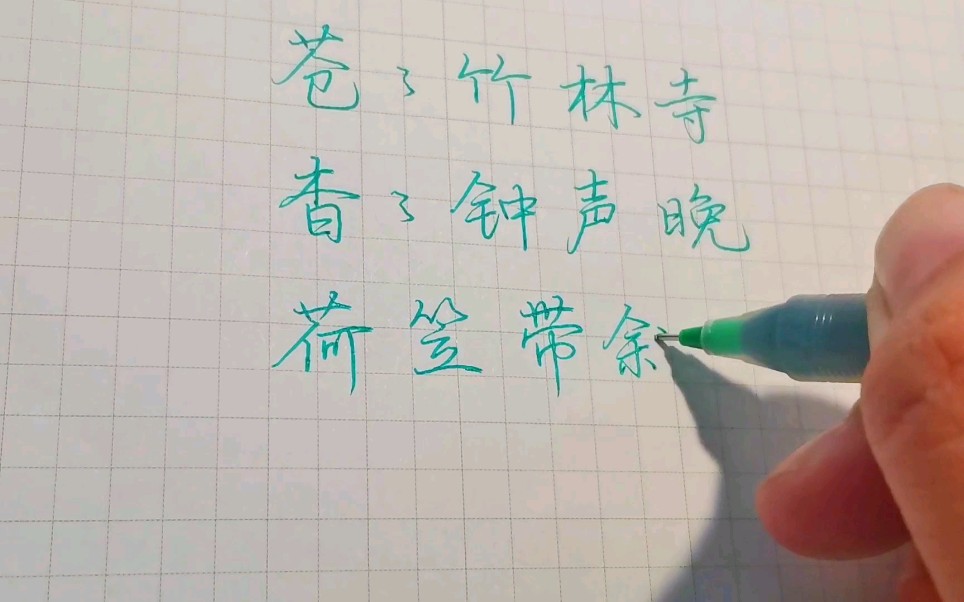 苍々竹林寺
杳々钟声晚
荷笠带余